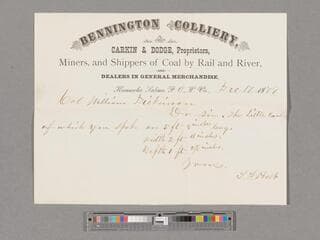 BENNINGTON COLLIERY,
CARKIN & DODGE, Proprietors,
Miners, and Shippers of Coal by Rail and River,
AND
DEALERS IN GENERAL MERCHANDISE.
Kanawha Salines P. O., W. Va.,
Col William Dickinson
Dr Sir. The little
of which you spoke are 5 ft inches long.
width 2 ft inches
Depth 1 ft inches
Yours